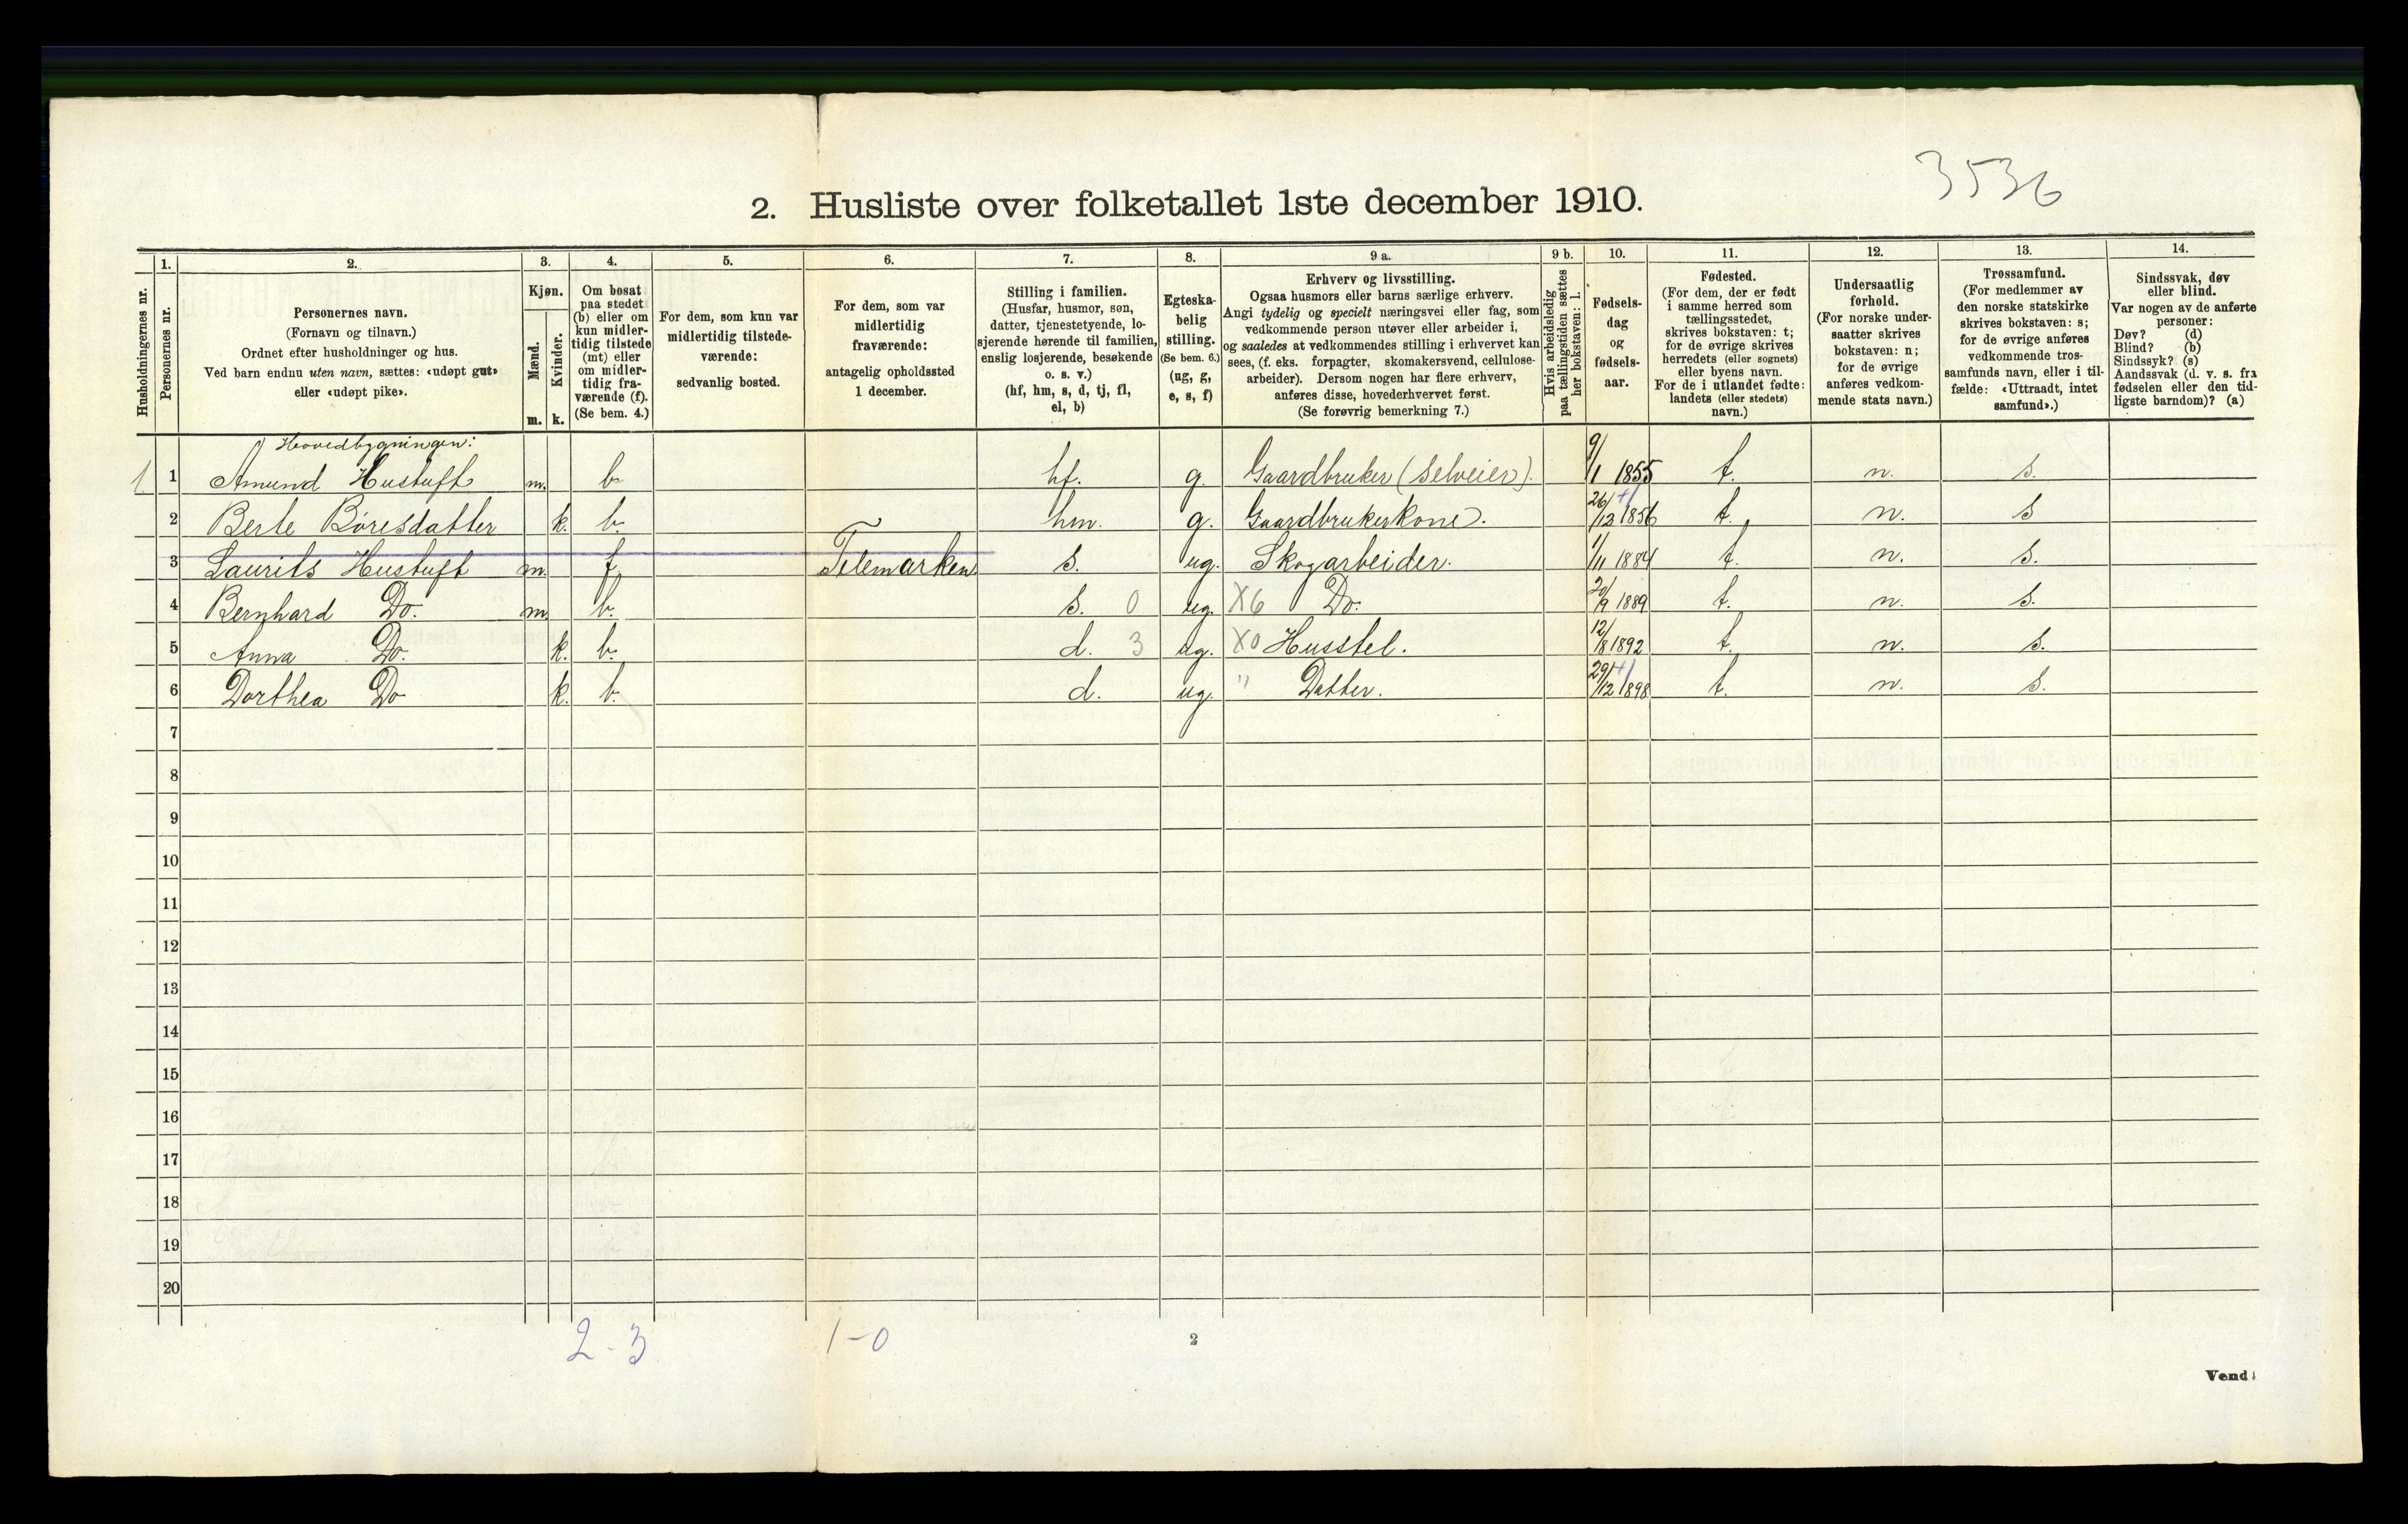 3536
2. Husliste over folketallet 1ste december 1910.
Husholdningernes nr.
1. Personernes nr.
2. Personernes navn.
(Fornavn og tilnavn.)
Ordnet efter husholdninger og hus.
Ved barn endnu uten navn, sættes: «udøpt gut»
eller «udøpt pike».
3. Kjøn.
Mænd. m.
Kvinder. k.
4. Om bosat
paa stedet
(b) eller om
kun midler-
tidig tilstede
(mt) eller
om midler-
tidig fra-
værende (f).
(Se bem. 4.)
5. For dem, som kun var
midlertidig tilstede-
værende:
sedvanlig bosted.
6. For dem, som var
midlertidig
fraværende:
antagelig opholdssted
1 december.
7. Stilling i familien.
(Husfar, husmor, søn,
datter, tjenestetyende, lo-
sjerende hørende til familien,
enslig losjerende, besøkende
o. s. v.)
(hf, hm, s, d, tj, fl,
el, b)
8. Egteska-
belig
stilling.
(Se bem. 6.)
(ug, g,
e, s, f)
9 a. Erhverv og livsstilling.
Ogsaa husmors eller barns særlige erhverv.
Angi tydelig og specielt næringsvei eller fag, som
vedkommende person utøver eller arbeider i,
og saaledes at vedkommendes stilling i erhvervet kan
sees, (f. eks. forpagter, skomakersvend, cellulose-
arbeider). Dersom nogen har flere erhverv,
anføres disse, hovederhvervet først.
(Se forøvrig bemerkning 7.)
9 b. Hvis arbeidsledig
paa tællingstiden sættes
her bokstaven: l.
10. Fødsels-
dag
og
fødsels-
aar.
11. Fødested.
(For dem, der er født
i samme herred som
tællingsstedet,
skrives bokstaven: t;
for de øvrige skrives
herredets (eller sognets)
eller byens navn.
For de i utlandet fødte:
landets (eller stedets)
navn.)
12. Undersaatlig
forhold.
(For norske under-
saatter skrives
bokstaven: n;
for de øvrige
anføres vedkom-
mende stats navn.)
13. Trossamfund.
(For medlemmer av
den norske statskirke
skrives bokstaven: s;
for de øvrige anføres
vedkommende tros-
samfunds navn, eller i til-
fælde: «Uttraadt, intet
samfund».)
14. Sindssvak, døv
eller blind.
Var nogen av de anførte
personer:
Døv? (d)
Blind? (b)
Sindssyk? (s)
Aandssvak (d. v. s. fra
fødselen eller den tid-
ligste barndom)? (a)
Hovedbygningen:
1 1 Amund Hustuft m. b. hf. g. Gaardbruker (Selveier). 9/1 1855 t. n. s.
2 Berte Böresdatter k. b. hm. g. Gaardbrukerkone. 26/12 1856 t. n. s
3 Laurits Hustuft m. f. Telemarken s. ug. Skogarbeider. 1/11 1884 t. n. s.
4 Bernhard Do. m. b. s. 0 ug. X6 Do. 20/9 1889 t. n. s.
5 Anna Do. k. b. d. 3 ug. X0 Husstel. 12/8 1892 t. n. s.
6 Dorthea Do k. b. d. ug. " Datter. 29/12 1898 t. n. s.
7
8
9
10
11
12
13
14
15
16
17
18
19
20
2-3 1-0
2
Vend!